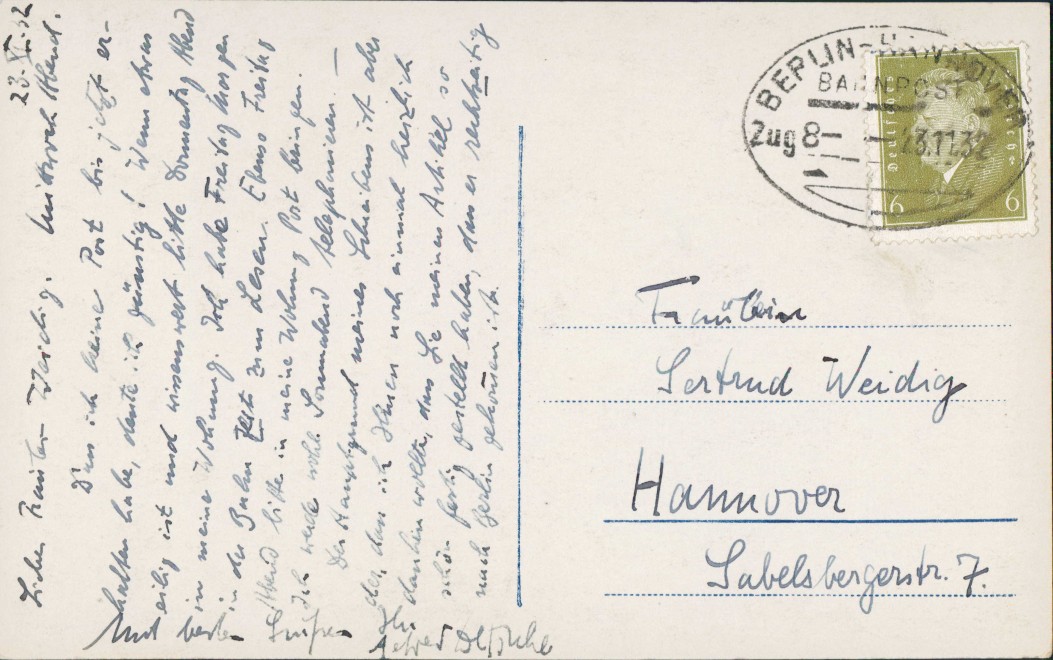 23. XI. 32
Liebes Fräulein Weidig. Mittwoch Abend.
Dass ich keine Post bis jetzt er-
halten habe, deute ich günstig! Wenn etwas
eilig ist und wissenswert bitte Donnerstag Abend
in meine Wohnung. Ich habe Freitag Morgen
in der Bahn Zeit zum Lesen. Ebenso Freitag
Abend bitte in meine Wohnung Post bringen.
Ich werde wohl Sonnabend telephonieren. —
Der Hauptgrund meines Schreibens ist aber
der, dass ich Ihnen noch einmal herzlich
danken wollte, dass Sie meinen Artikel so
schön fertig gestellt haben, dass er rechtzeitig
nach Berlin gekommen ist.
Mit besten Grüßen Ihr
Alfred
BERLIN-HANNOVER
BAHNPOST
Zug 8
23.11.32
Deutsches Reich
6 6
Fräulein
Gertrud Weidig
Hannover
Gabelsbergerstr. 7.